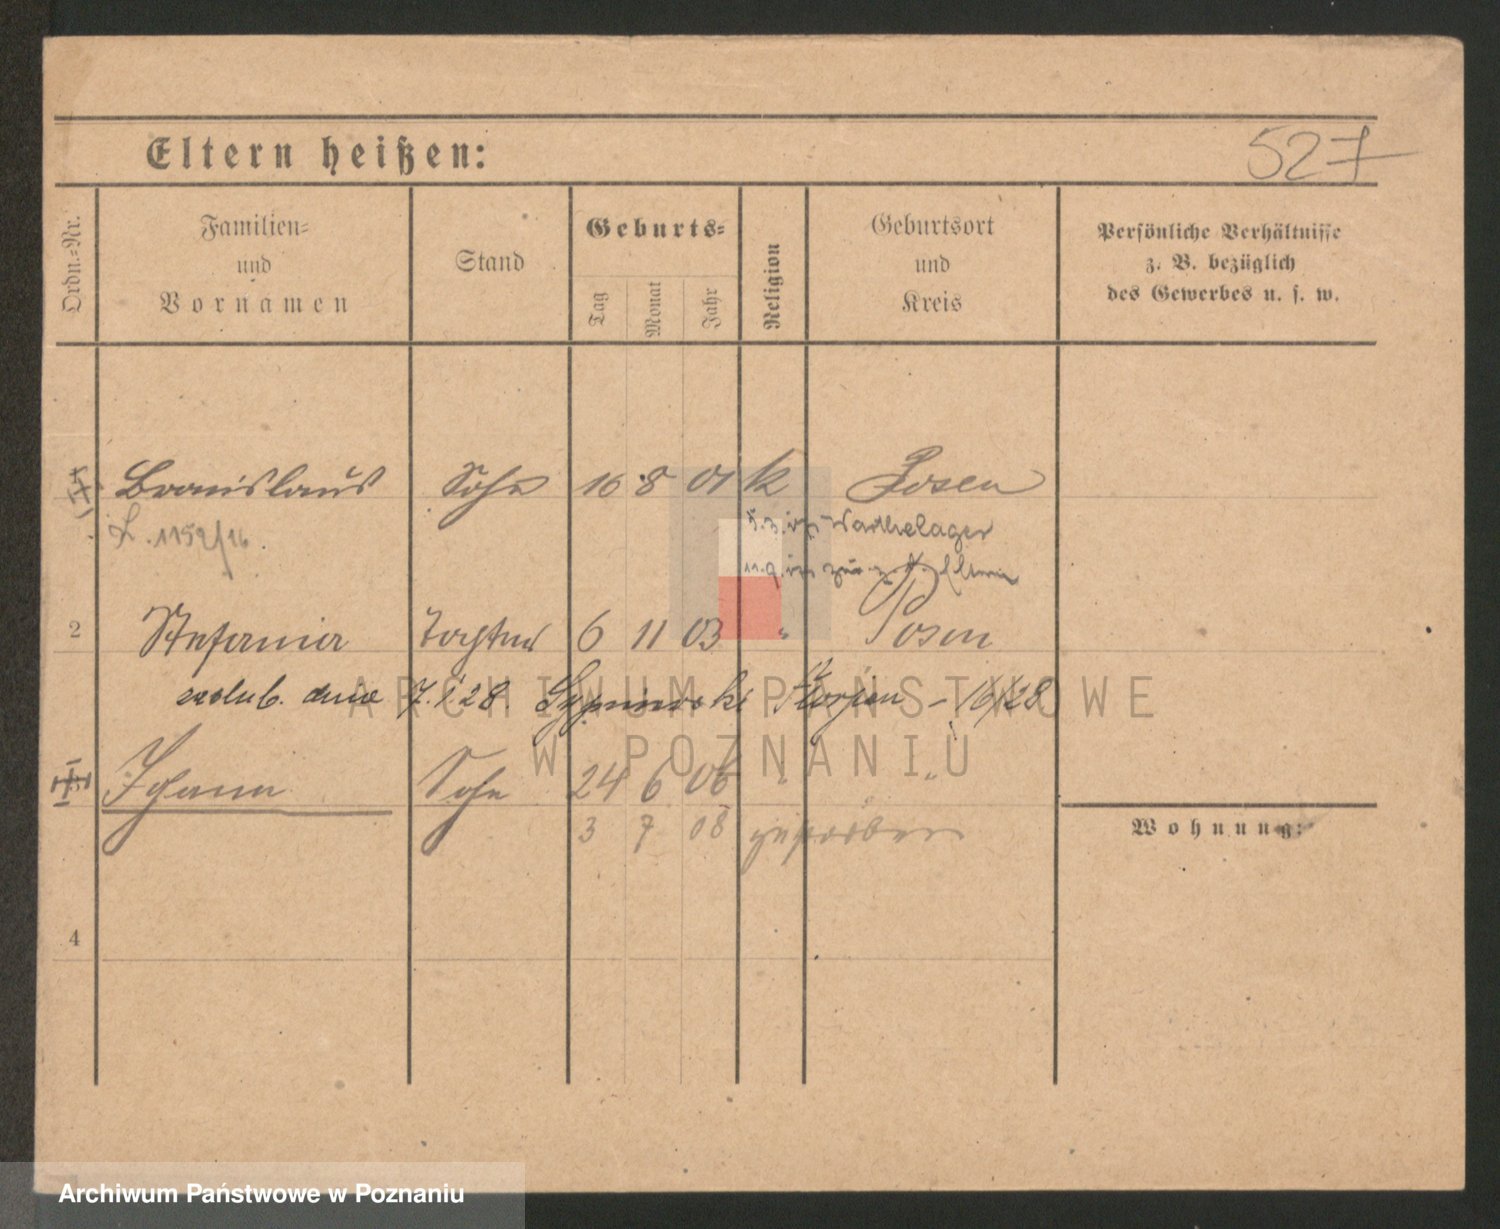 527
Eltern heißen:
Ordn.-Nr.
Familien-
und
Vornamen
Stand
Geburts-
Tag
Monat
Jahr
Religion
Geburtsort
und
Kreis
Persönliche Verhältnisse
z. B. bezüglich
des Gewerbes u. s. w.
Bronislaus Sohn 16 8 01 k Posen
L. 1159/16. Warthelager
Eltern
2 Stefania Tochter 6 11 03 " Posen
ślub. dnia 7. 1. 28. Florjan - 16/28
Johann Sohn 24 6 06 " "
3 7 08 gestorben
Wohnung:
4
ARCHIWUM PAŃSTWOWE
W POZNANIU
Archiwum Państwowe w Poznaniu